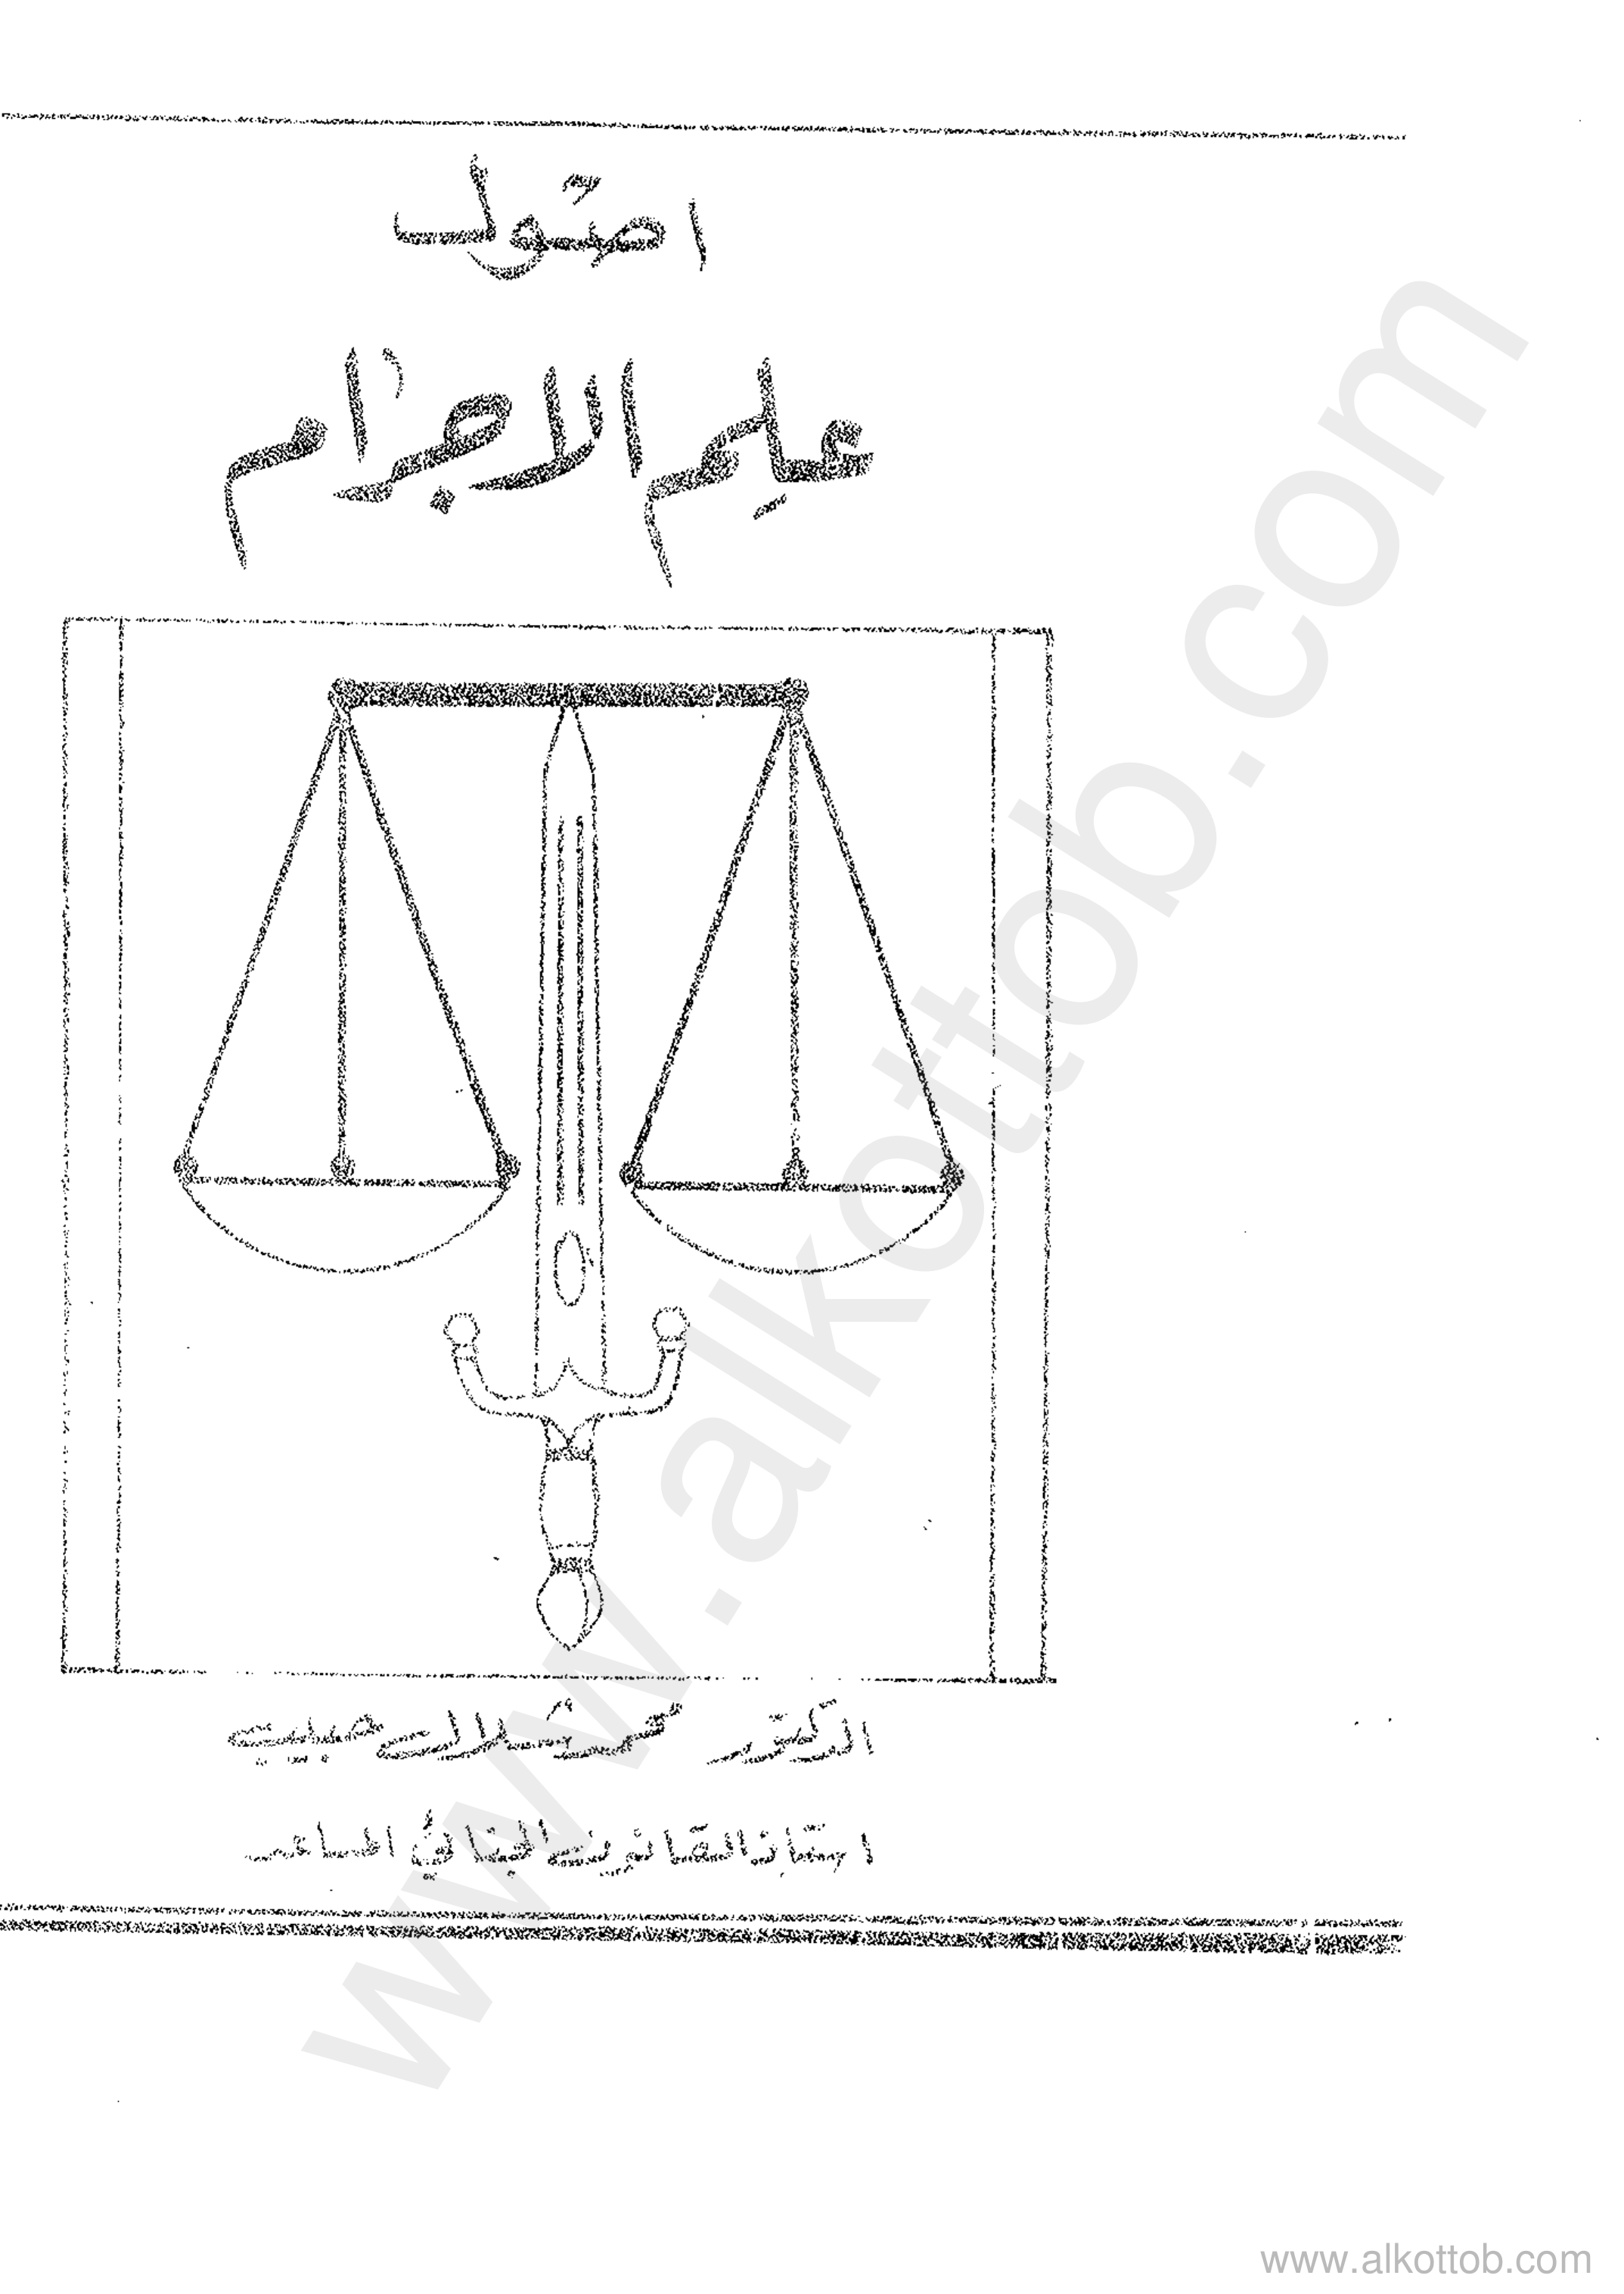 اصول
علم الاجرام
الدكتور محمد شلال حبيب
استاذ القانون الجنائي المساعد
www.alkottob.com
www.alkottob.com